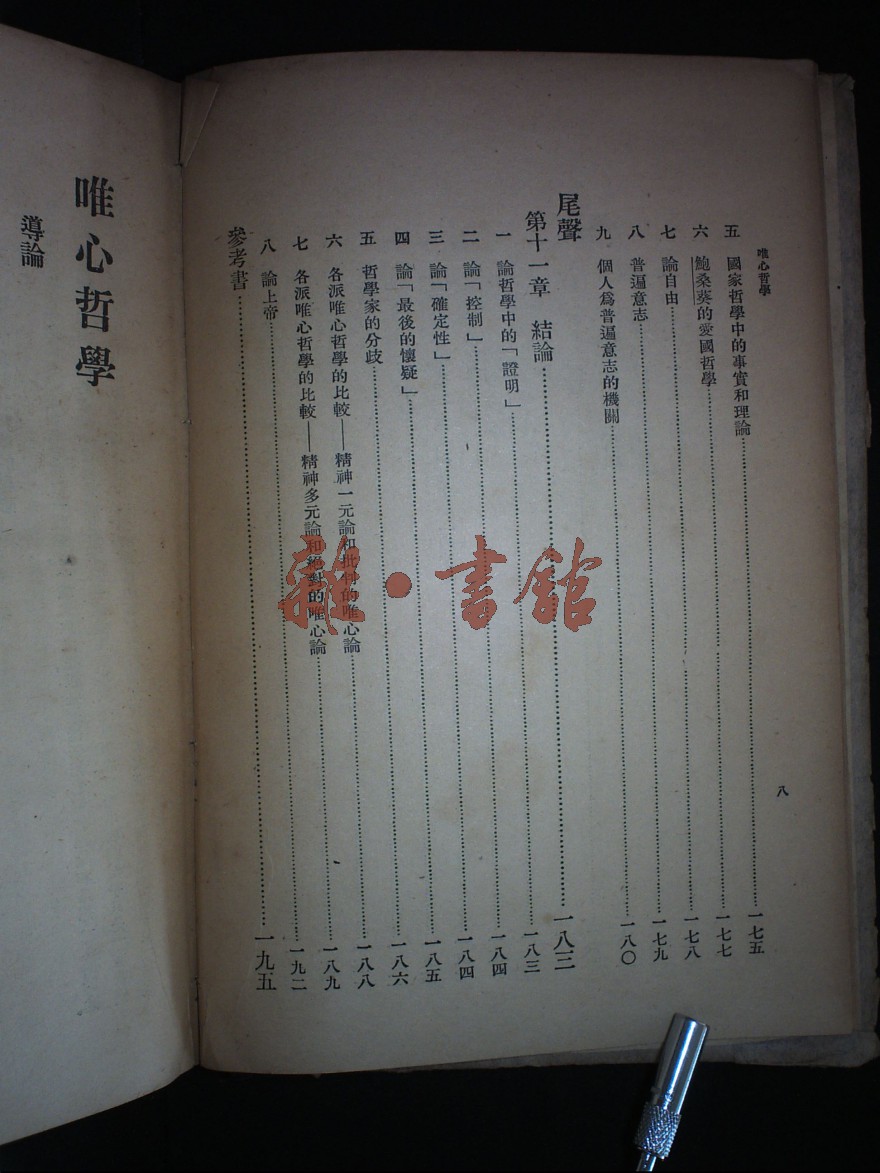 唯心哲學
八
五 國家哲學中的事實和理論……一七五
六 鮑桑葵的愛國哲學……一七七
七 論自由……一七八
八 普遍意志……一七九
九 個人爲普遍意志的機關……一八〇
尾聲
第十一章 結論……一八三
一 論哲學中的「證明」……一八三
二 論「控制」……一八四
三 論「確定性」……一八四
四 論「最後的懷疑」……一八五
五 哲學家的分歧……一八六
六 各派唯心哲學的比較——精神一元論和批判的唯心論……一八八
七 各派唯心哲學的比較——精神多元論和絕對的唯心論……一八九
八 論上帝……一九二
參考書……一九五
唯心哲學
導論
雜·書館